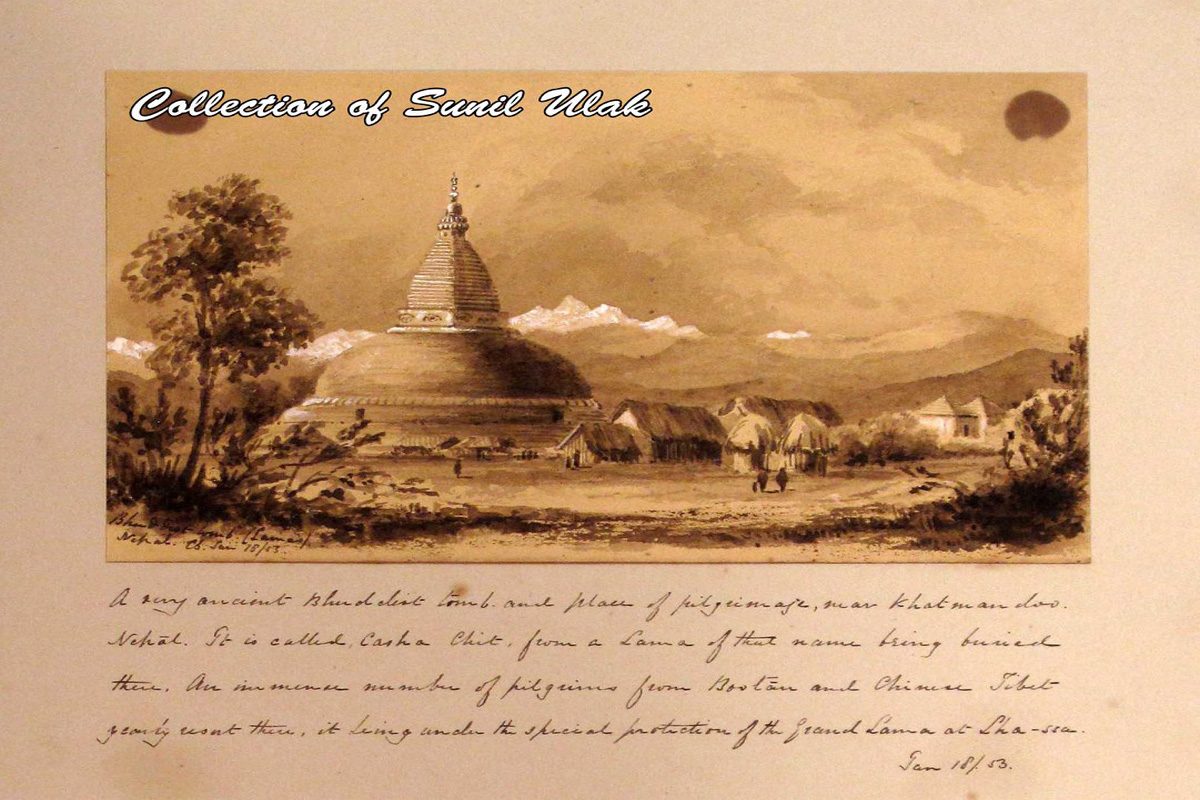 Collection of Sunil Ulak
Bhuddist tomb. (Lamas)
Nepal. Jan 18/53.
A very ancient Bhuddist tomb. and place of pilgrimage, near Khatmandoo.
Nepāl. It is called, Casha Chit, from a Lama of that name being buried
there. An immense number of pilgrims from Bootān and Chinese Tibet
yearly resort there, it being under the special protection of the Grand Lama at Lha-ssa.
Jan 18/.53.